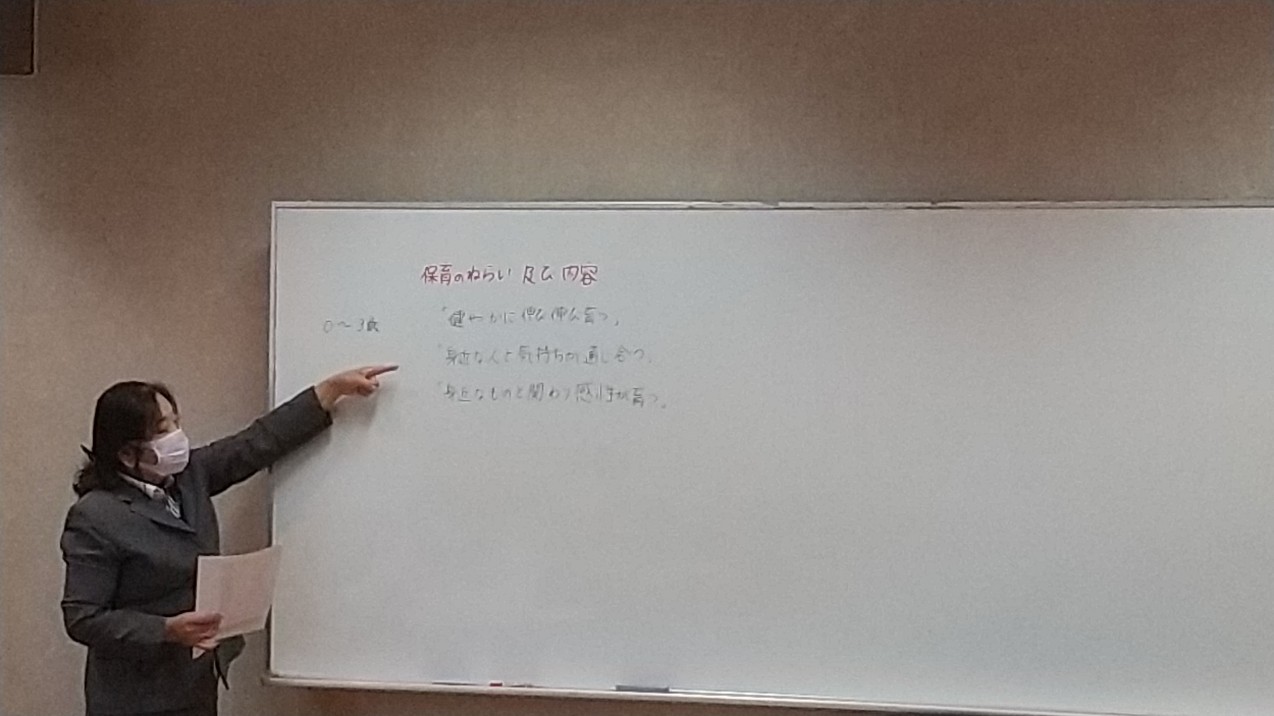 保育のねらい及び内容
0〜3歳
「健やかに伸び伸び育つ」
「身近な人と気持ちが通じ合う」
「身近なものと関わり感性が育つ」